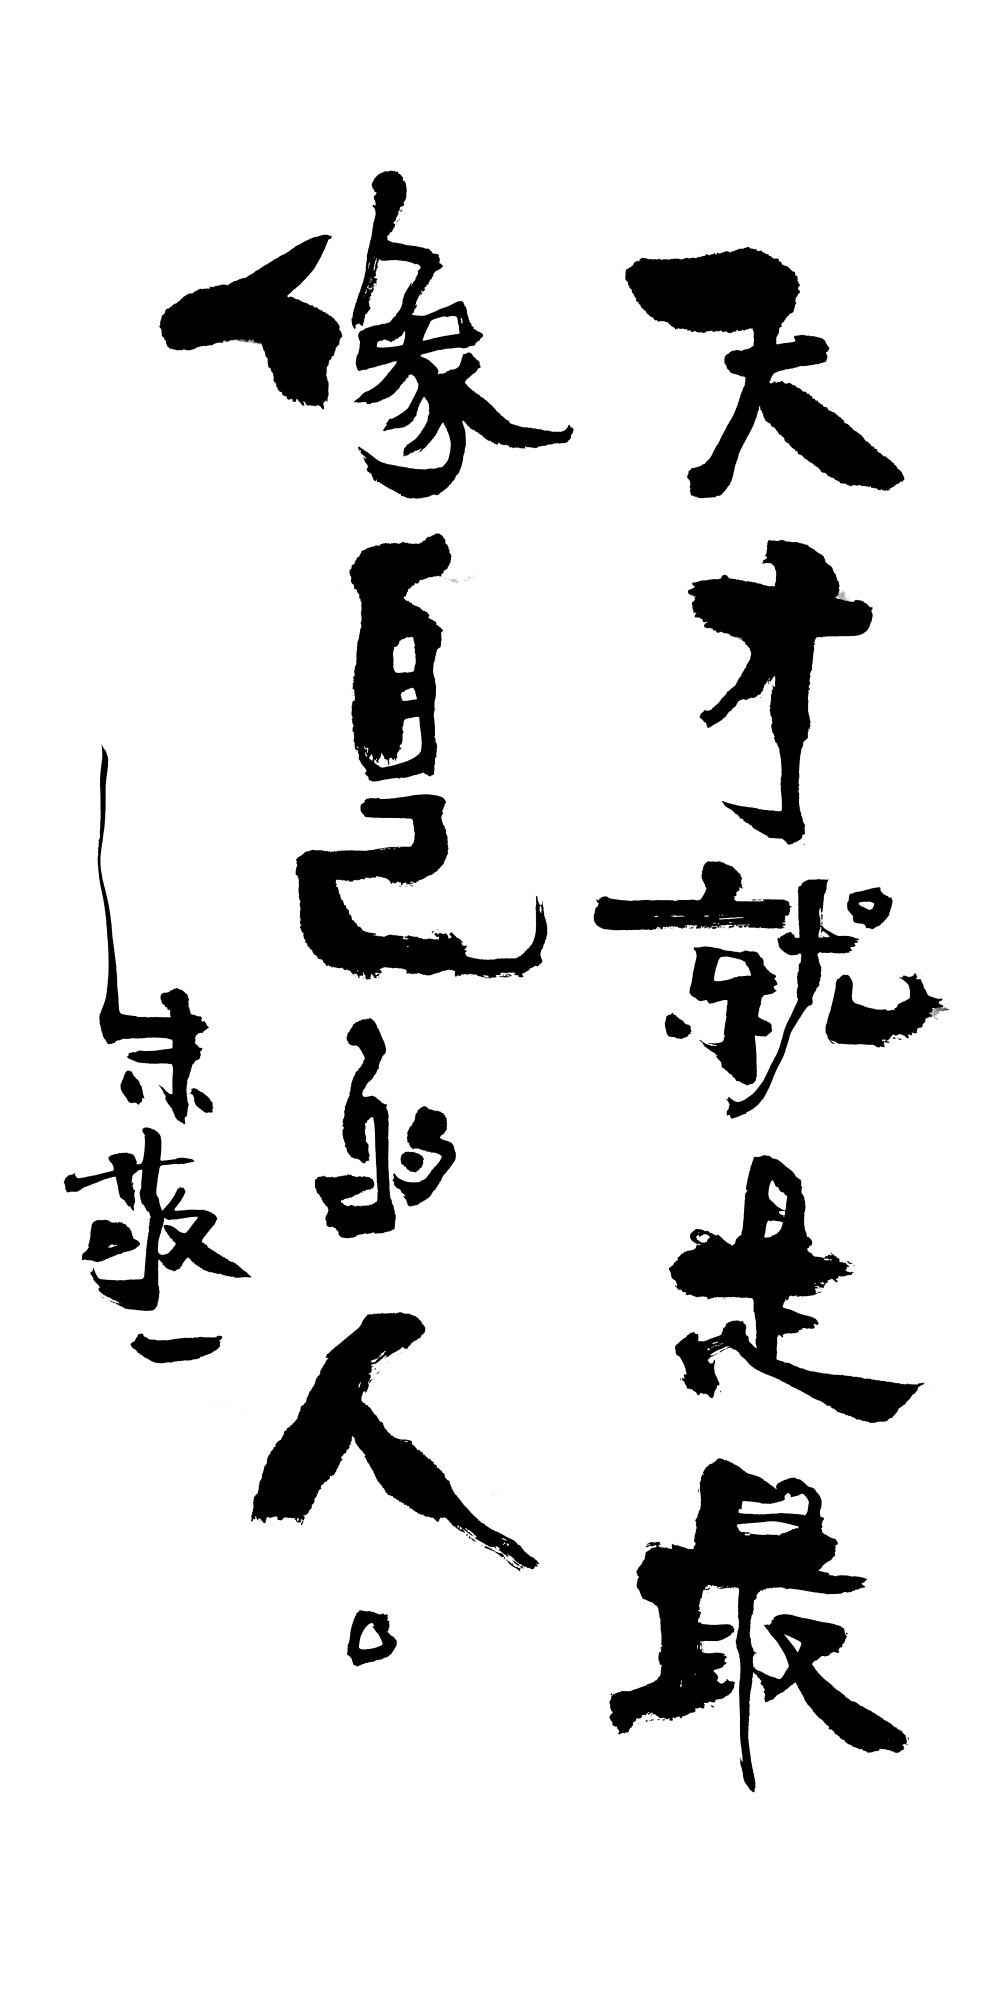 天才就是最
像自己的人。
朱敬一